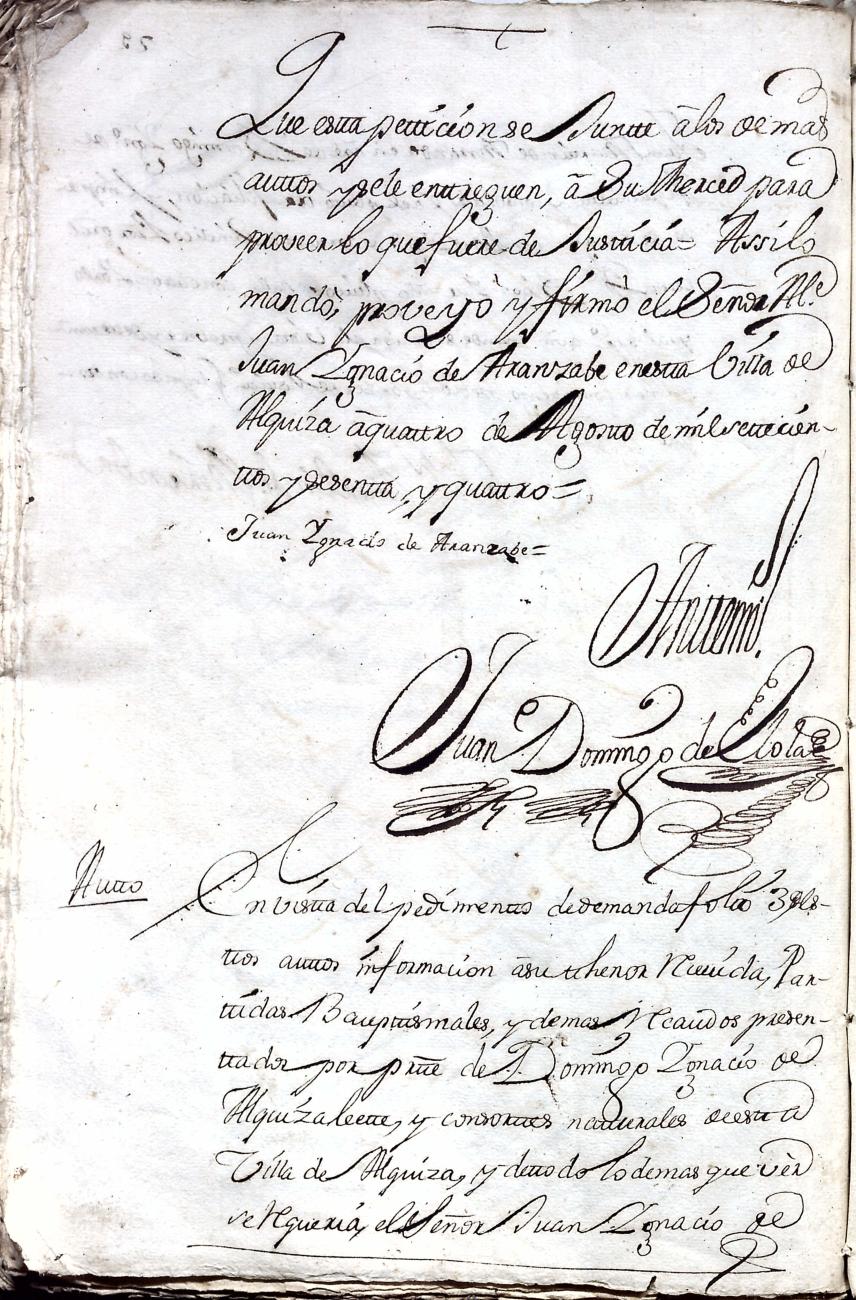 Que estta petticion se Juntte â los demas
auttos y se le enttreguen, â Su Merced para
proveer lo que fuere de Justticia= Assi lo
mandò, proveyò y firmò el Señor Alc.e
Juan Ygnacio de Aranzabe en estta Villa de
Alquiza â quattro de Agostto de mil settecien-
ttos y sesentta, y quattro=
Juan Ygnacio de Aranzabe=
Anttemi.
Juan Domingo de Elola
Autto
En vistta del pedimentto de demanda folio 3 de es-
ttos auttos informacion â su tthenor Recivida, Par-
ttidas Bapttismales, y demas Recaudos presen-
ttados por partte de Domingo Ygnacio de
Alquizaleette, y consorttes natturales de estta
Villa de Alquiza, y de ttodo lo demas que vèr
se Rqueria, el Señor Juan Ygnacio de